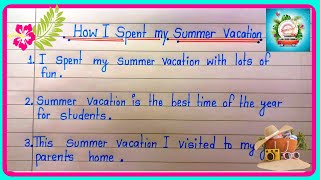 . How I Spent my Summer Vacation.
1. I spent my summer vacation with lots of
fun.
2. Summer vacation is the best time of the year
for students.
3. This summer vacation I visited to my
parents home.